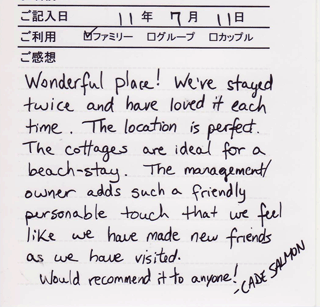 ご記入日 11 年 7 月 11 日
ご利用 ☑ファミリー □グループ □カップル
ご感想
Wonderful place! We've stayed
twice and have loved it each
time. The location is perfect.
The cottages are ideal for a
beach-stay. The management/
owner adds such a friendly
personable touch that we feel
like we have made new friends
as we have visited.
Would recommend it to anyone!
-CADE SALMON